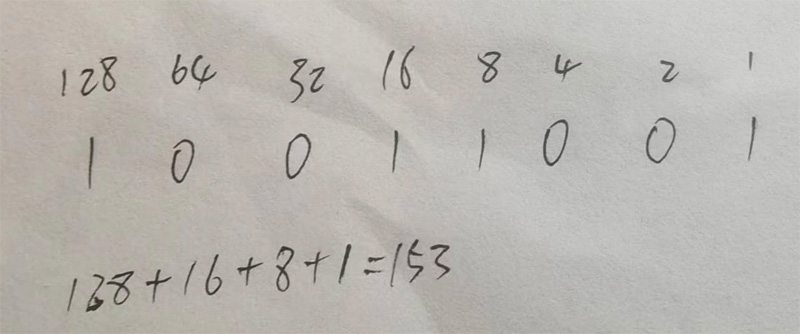 128 64 32 16 8 4 2 1
1 0 0 1 1 0 0 1
128+16+8+1=153